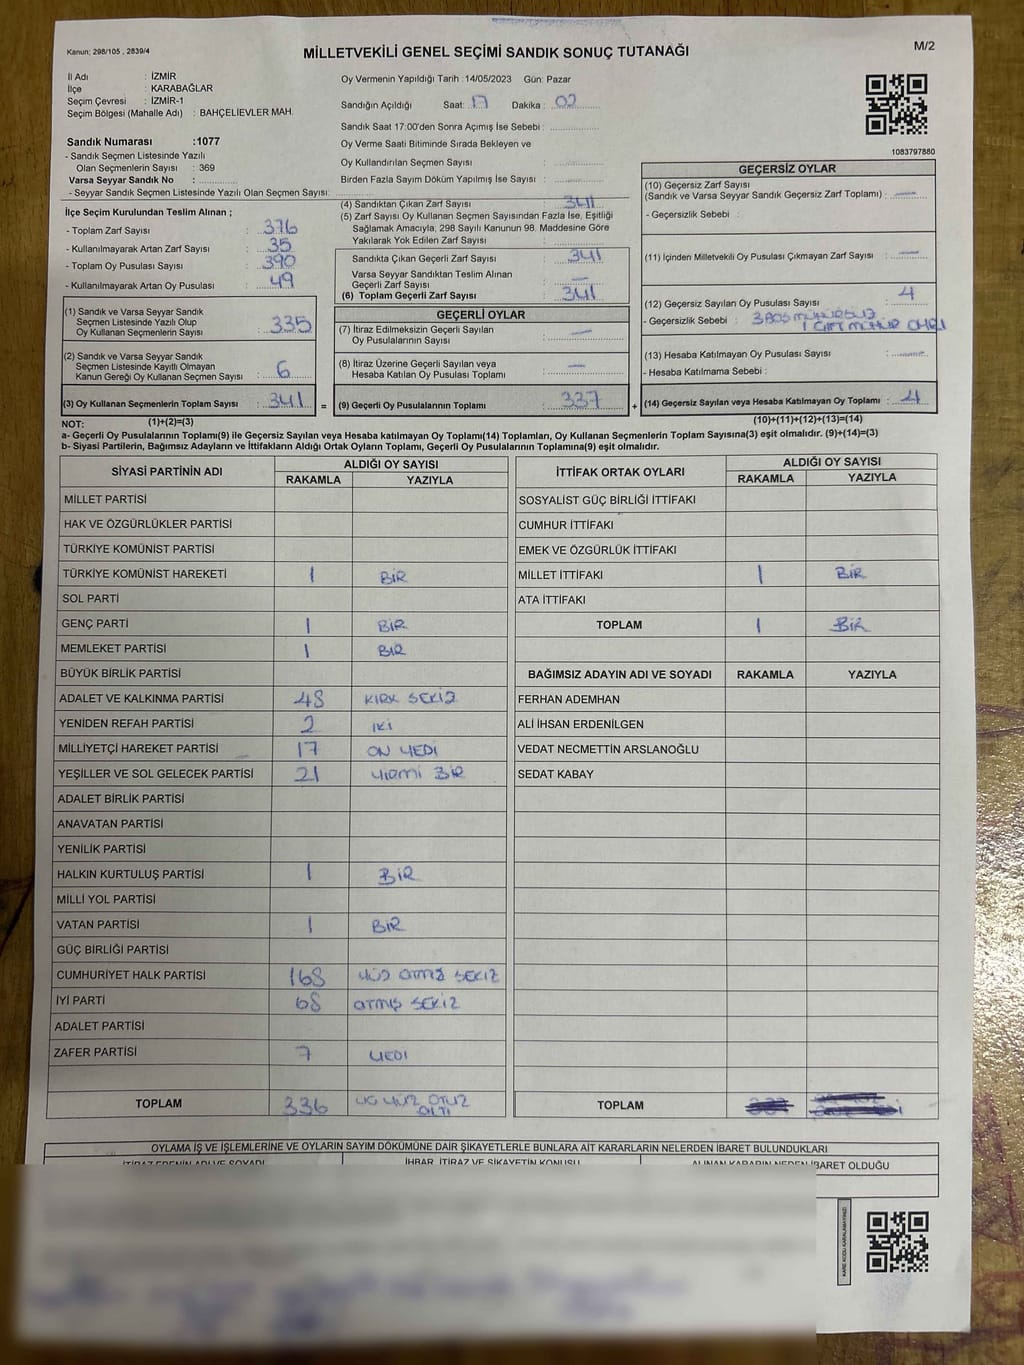 Kanun: 298/105 , 2839/4
MİLLETVEKİLİ GENEL SEÇİMİ SANDIK SONUÇ TUTANAĞI
M/2
İl Adı : İZMİR
İlçe : KARABAĞLAR
Seçim Çevresi : İZMİR-1
Seçim Bölgesi (Mahalle Adı) : BAHÇELİEVLER MAH.
Sandık Numarası :1077
- Sandık Seçmen Listesinde Yazılı
Olan Seçmenlerin Sayısı : 369
Varsa Seyyar Sandık No :
- Seyyar Sandık Seçmen Listesinde Yazılı Olan Seçmen Sayısı:
Oy Vermenin Yapıldığı Tarih :14/05/2023 Gün: Pazar
Sandığın Açıldığı Saat: 17 Dakika : 02
Sandık Saat 17:00'den Sonra Açımış İse Sebebi :
Oy Verme Saati Bitiminde Sırada Bekleyen ve
Oy Kullandırılan Seçmen Sayısı :
Birden Fazla Sayım Döküm Yapılmış İse Sayısı :
1083797880
İlçe Seçim Kurulundan Teslim Alınan ;
- Toplam Zarf Sayısı : 376
- Kullanılmayarak Artan Zarf Sayısı : 35
- Toplam Oy Pusulası Sayısı : 390
- Kullanılmayarak Artan Oy Pusulası : 49
(1) Sandık ve Varsa Seyyar Sandık
Seçmen Listesinde Yazılı Olup
Oy Kullanan Seçmenlerin Sayısı : 335
(2) Sandık ve Varsa Seyyar Sandık
Seçmen Listesinde Kayıtlı Olmayan
Kanun Gereği Oy Kullanan Seçmen Sayısı : 6
(3) Oy Kullanan Seçmenlerin Toplam Sayısı : 341
(4) Sandıktan Çıkan Zarf Sayısı : 341
(5) Zarf Sayısı Oy Kullanan Seçmen Sayısından Fazla İse, Eşitliği
Sağlamak Amacıyla, 298 Sayılı Kanunun 98. Maddesine Göre
Yakılarak Yok Edilen Zarf Sayısı :
Sandıkta Çıkan Geçerli Zarf Sayısı : 341
Varsa Seyyar Sandıktan Teslim Alınan
Geçerli Zarf Sayısı : —
(6) Toplam Geçerli Zarf Sayısı : 341
GEÇERLİ OYLAR
(7) İtiraz Edilmeksizin Geçerli Sayılan
Oy Pusulalarının Sayısı : —
(8) İtiraz Üzerine Geçerli Sayılan veya
Hesaba Katılan Oy Pusulası Toplamı : —
= (9) Geçerli Oy Pusulalarının Toplamı : 337
GEÇERSİZ OYLAR
(10) Geçersiz Zarf Sayısı
(Sandık ve Varsa Seyyar Sandık Geçersiz Zarf Toplamı) : —
- Geçersizlik Sebebi :
(11) İçinden Milletvekili Oy Pusulası Çıkmayan Zarf Sayısı : —
(12) Geçersiz Sayılan Oy Pusulası Sayısı : 4
- Geçersizlik Sebebi : 3 BOŞ MÜHÜRSÜZ
1 ÇİFT MÜHÜR
(13) Hesaba Katılmayan Oy Pusulası Sayısı :
- Hesaba Katılmama Sebebi :
+ (14) Geçersiz Sayılan veya Hesaba Katılmayan Oy Toplamı : 4
NOT: (1)+(2)=(3)
(10)+(11)+(12)+(13)=(14)
a- Geçerli Oy Pusulalarının Toplamı(9) ile Geçersiz Sayılan veya Hesaba katılmayan Oy Toplamı(14) Toplamları, Oy Kullanan Seçmenlerin Toplam Sayısına(3) eşit olmalıdır. (9)+(14)=(3)
b- Siyasi Partilerin, Bağımsız Adayların ve İttifakların Aldığı Ortak Oyların Toplamı, Geçerli Oy Pusulalarının Toplamına(9) eşit olmalıdır.
SİYASİ PARTİNİN ADI ALDIĞI OY SAYISI
RAKAMLA YAZIYLA
MİLLET PARTİSİ
HAK VE ÖZGÜRLÜKLER PARTİSİ
TÜRKİYE KOMÜNİST PARTİSİ
TÜRKİYE KOMÜNİST HAREKETİ 1 BİR
SOL PARTİ
GENÇ PARTİ 1 BİR
MEMLEKET PARTİSİ 1 BİR
BÜYÜK BİRLİK PARTİSİ
ADALET VE KALKINMA PARTİSİ 48 KIRK SEKİZ
YENİDEN REFAH PARTİSİ 2 İKİ
MİLLİYETÇİ HAREKET PARTİSİ 17 ON YEDİ
YEŞİLLER VE SOL GELECEK PARTİSİ 21 YİRMİ BİR
ADALET BİRLİK PARTİSİ
ANAVATAN PARTİSİ
YENİLİK PARTİSİ
HALKIN KURTULUŞ PARTİSİ 1 BİR
MİLLİ YOL PARTİSİ
VATAN PARTİSİ 1 BİR
GÜÇ BİRLİĞİ PARTİSİ
CUMHURİYET HALK PARTİSİ 168 YÜZ ATMIŞ SEKİZ
İYİ PARTİ 68 ATMIŞ SEKİZ
ADALET PARTİSİ
ZAFER PARTİSİ 7 YEDİ
TOPLAM 336 ÜÇ YÜZ OTUZ
ALTI
İTTİFAK ORTAK OYLARI ALDIĞI OY SAYISI
RAKAMLA YAZIYLA
SOSYALİST GÜÇ BİRLİĞİ İTTİFAKI
CUMHUR İTTİFAKI
EMEK VE ÖZGÜRLÜK İTTİFAKI
MİLLET İTTİFAKI 1 BİR
ATA İTTİFAKI
TOPLAM 1 BİR
BAĞIMSIZ ADAYIN ADI VE SOYADI RAKAMLA YAZIYLA
FERHAN ADEMHAN
ALİ İHSAN ERDENİLGEN
VEDAT NECMETTİN ARSLANOĞLU
SEDAT KABAY
TOPLAM
OYLAMA İŞ VE İŞLEMLERİNE VE OYLARIN SAYIM DÖKÜMÜNE DAİR ŞİKAYETLERLE BUNLARA AİT KARARLARIN NELERDEN İBARET BULUNDUKLARI
İTİRAZ EDENİN ADI VE SOYADI İHBAR, İTİRAZ VE ŞİKAYETİN KONUSU ALINAN KARARIN NEDEN İBARET OLDUĞU
KARE KODU KARALAMAYINIZ!